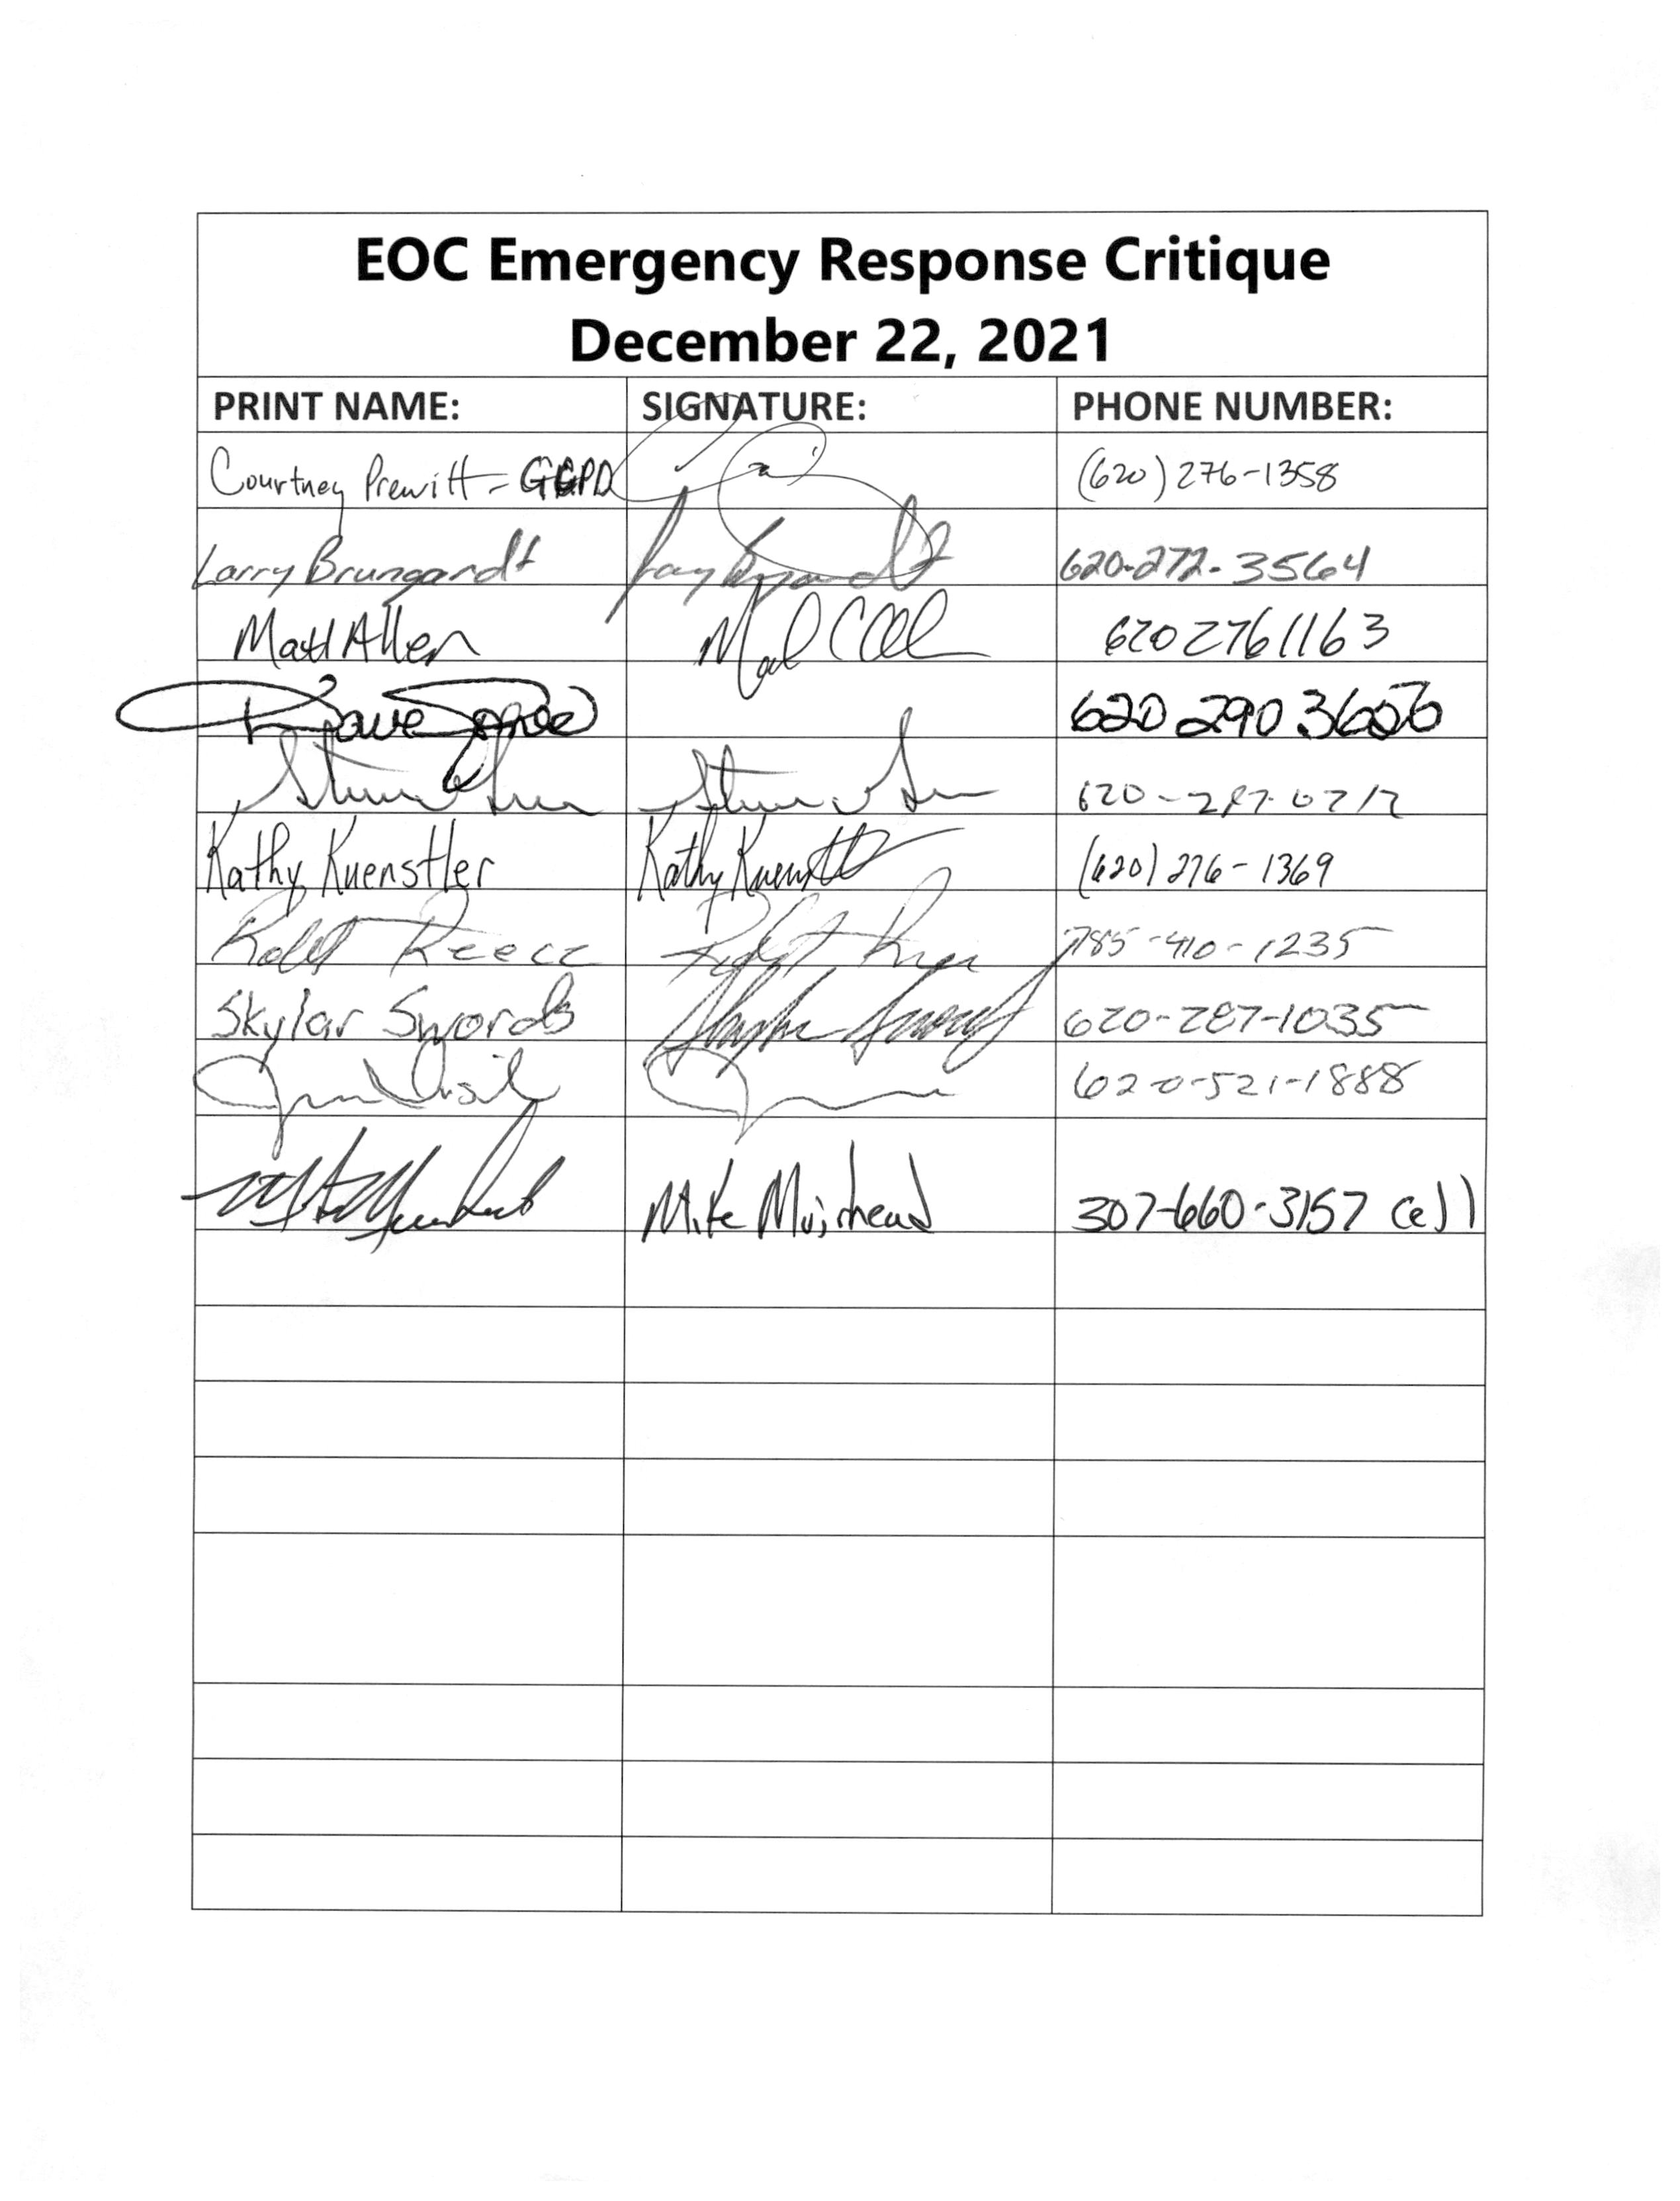 EOC Emergency Response Critique
December 22, 2021
PRINT NAME: SIGNATURE: PHONE NUMBER:
Courtney Prewitt - GCPD (620) 276-1358
Larry Brungardt 620-272-3564
Matt Allen 6202761163
Dave 620 290 3656
620-
Kathy Kuenstler Kathy Kuenstler (620) 276-1369
Robert Reece 785-410-1235
Skylar Swords Skylar Swords 620-287-1035
620-521-1888
Mike Muirhead 307-660-3157 Cell